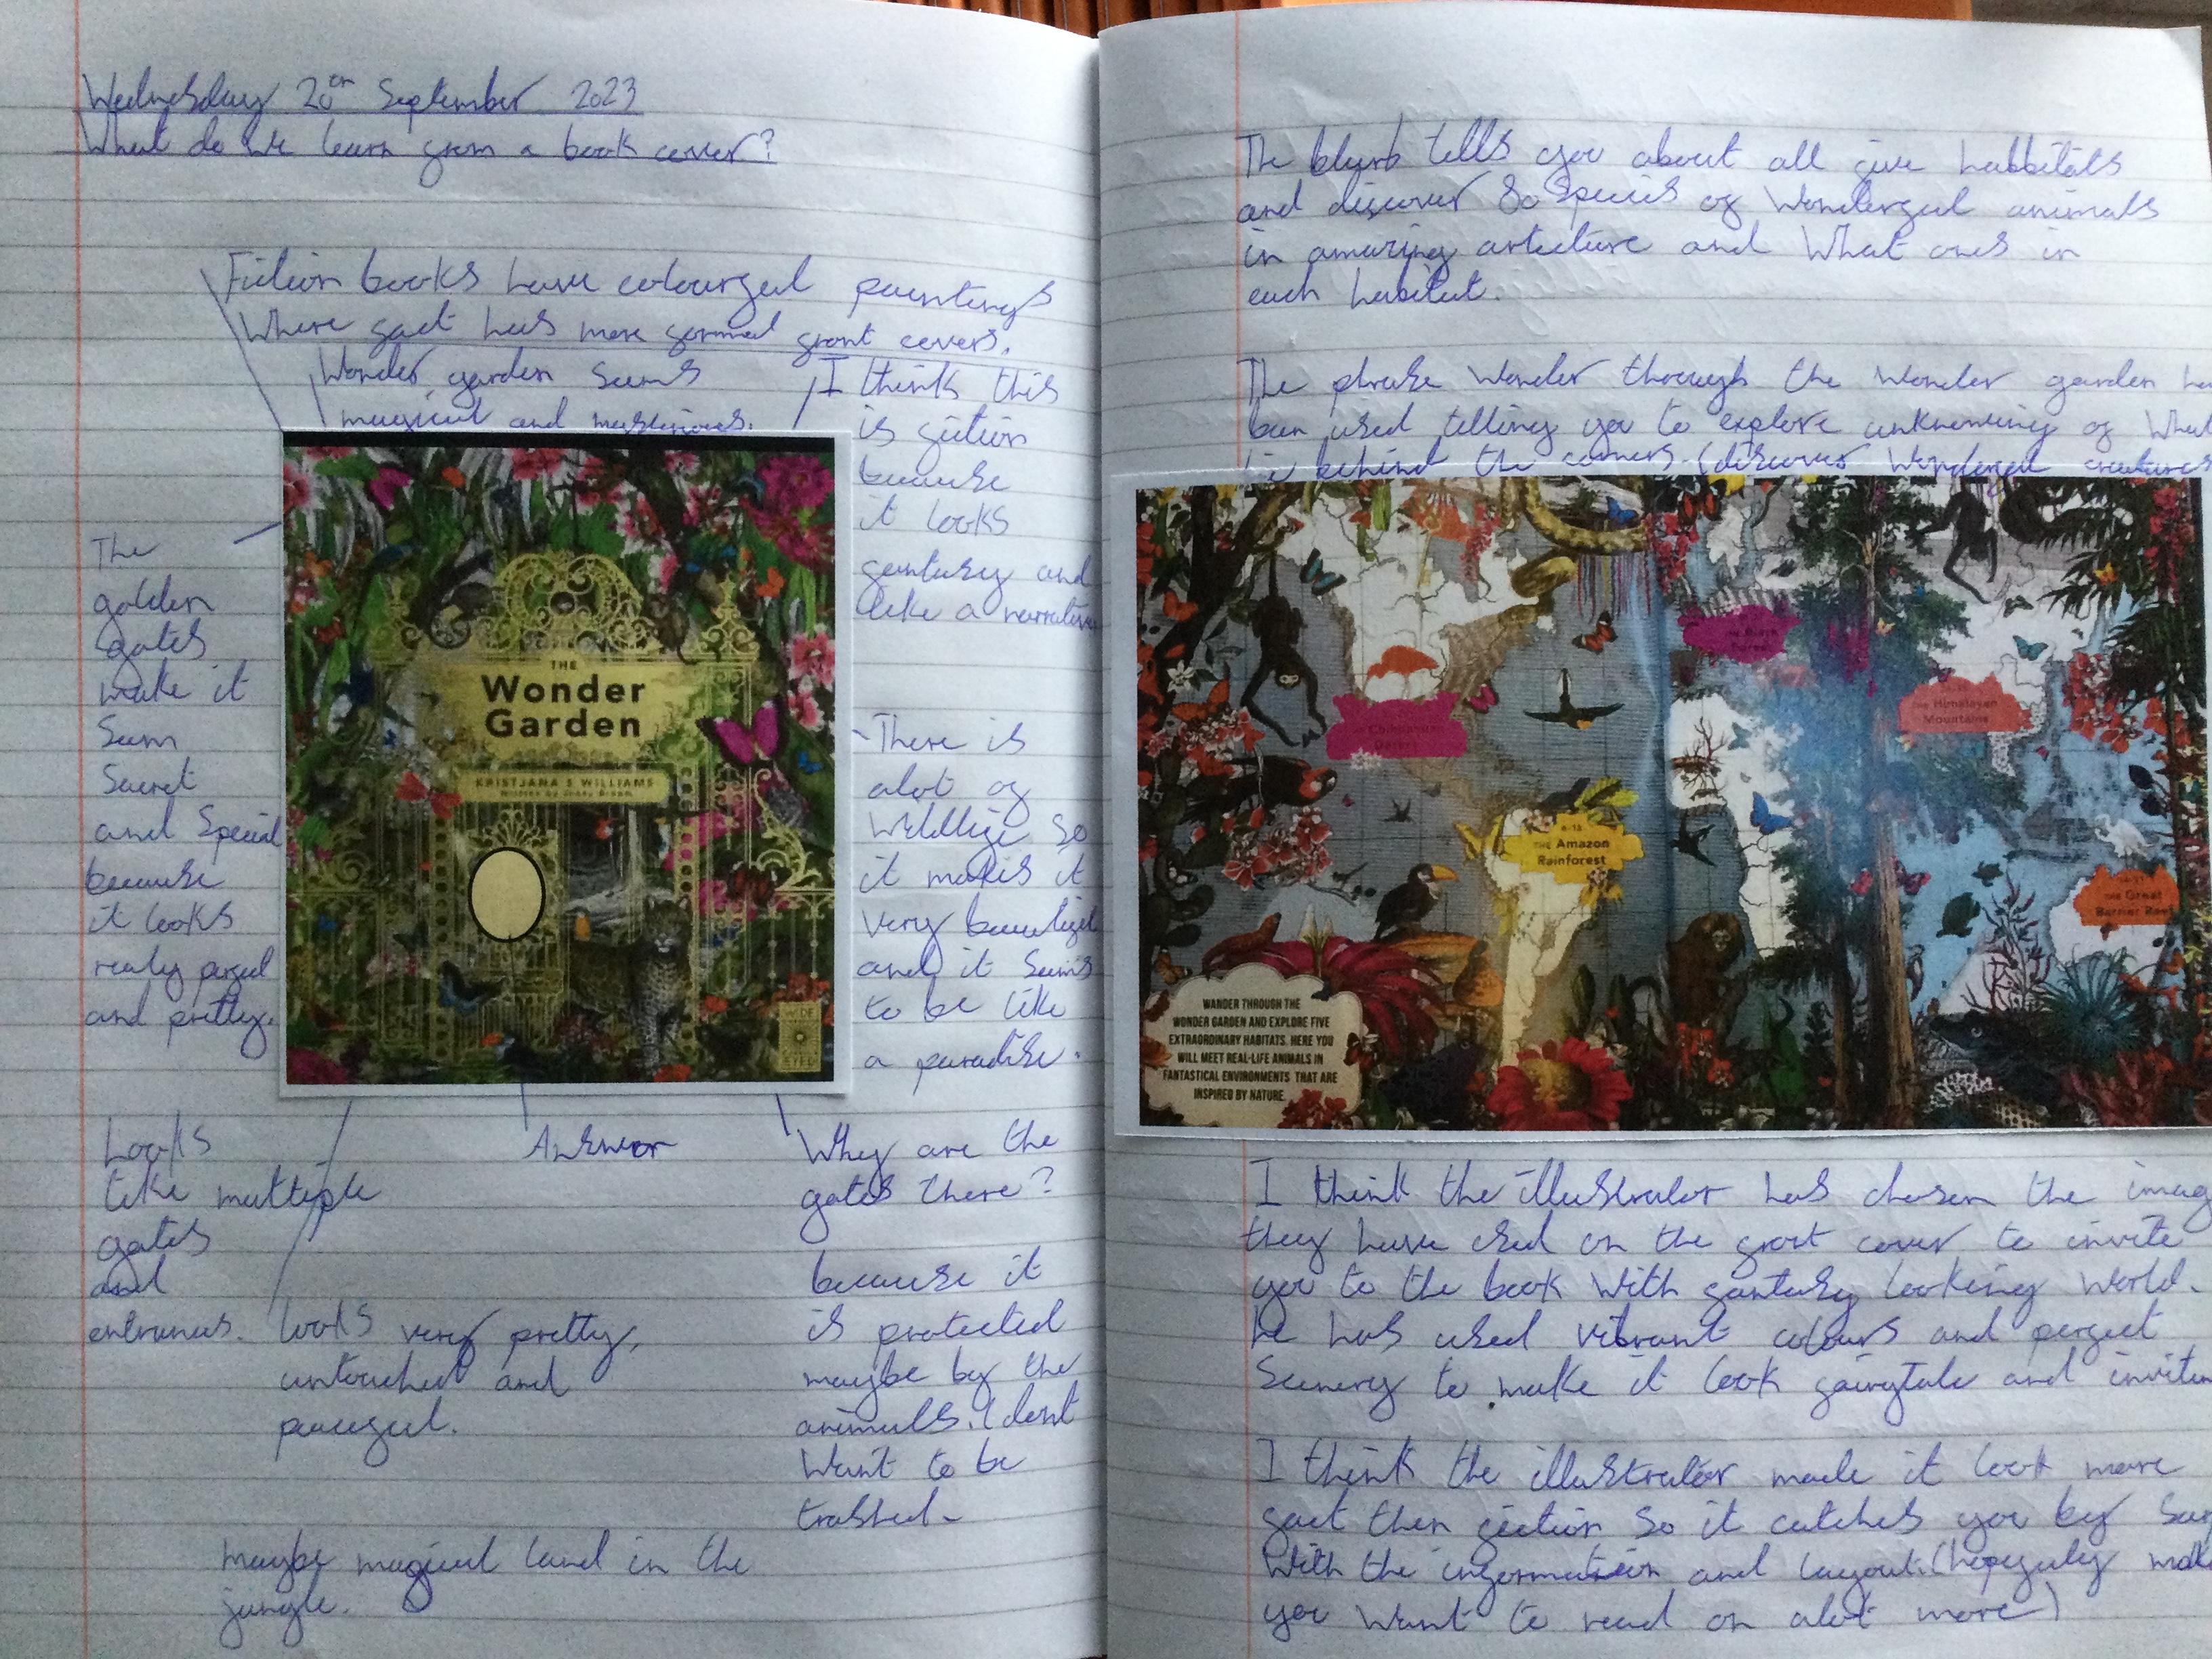 Wednesday 20th September 2023
What do we learn from a book cover?
Fiction books have colourful paintings
Where fact has more formal front covers.
Wonder garden seems
magical and
I think this
is fiction
because
it looks
fantasy and
like a narrative
The
golden
gates
make it
Seem
Secret
and Special
because
it looks
realy
and pretty.
THE
Wonder
Garden
KRISTJANA S WILLIAMS
Written by Jenny Broom
WIDE
EYED
-There is
alot of
Wildlife So
it makes it
very
and it Seems
to be like
a paradise.
Looks
like multiple
gates
and
entrances.
Answer
Why are the
gates there?
because it
is protected
maybe by the
animals. (dont
Want to be
trashed-
looks very pretty,
untouched and
Maybe magical land in the
jungle.
The blurb tells you about all five habbitats
and discover 80 Species of Wonderful animals
in amazing and What ones in
each habitat.
The phrase Wonder through the Wonder garden
been used telling you to explore unknowing of What
behind the corners. (discover Wonderful creatures
THE Himalayan
Mountains
THE Amazon
Rainforest
THE Great
Barrier Reef
WANDER THROUGH THE
WONDER GARDEN AND EXPLORE FIVE
EXTRAORDINARY HABITATS. HERE YOU
WILL MEET REAL-LIFE ANIMALS IN
FANTASTICAL ENVIRONMENTS THAT ARE
INSPIRED BY NATURE.
I think the illustrator has chosen the imag
they have used on the front cover to invite
you to the book With fantasy looking World.
he has used vibrant colours and perfect
Scenery to make it look fairytale and
I think the illustrator made it look more
fact then fiction So it catches you by
With the information and layout. (hopefuly
you Want to read on alot more)